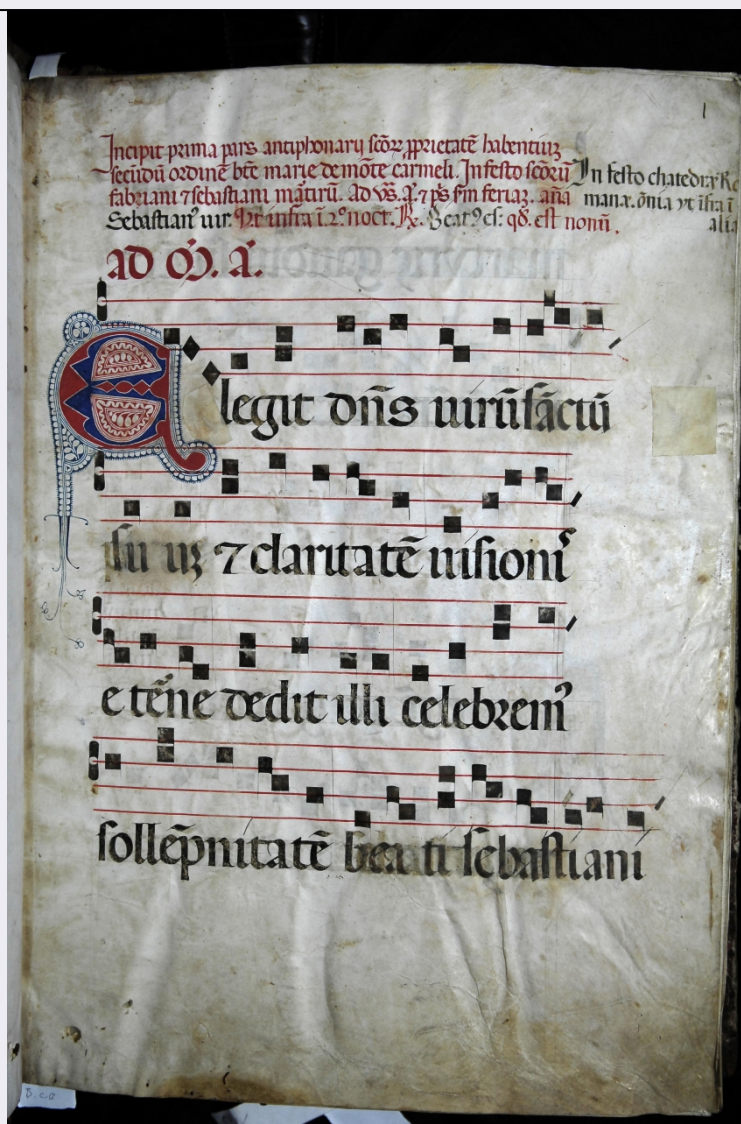 1
Incipit prima pars antiphonarij sc̄oꝝ ꝓprietatē habentiuꝫ
secūdū ordinē btē marie de mōte carmeli. In festo sc̄oꝝū
fabriani ⁊ sebastiani mārtirū. Ad vs̄. a͞. ⁊ ps̄ sm̄ feriaꝫ. an̄a
Sebastianꝰ uir. Vt infra ī. 2º noct. ℞. Beatꝰ es: qd̄. est nonū.
In festo chatedre Ro
mana. ōnia vt īfra ī
alia
ad M̄. A͞.
Elegit dn̄s uirū sāctū
suuꝫ ⁊ claritatē uisionꝭ
etēne dedit illi celebrem
sollēpnitatē beati sebastiani